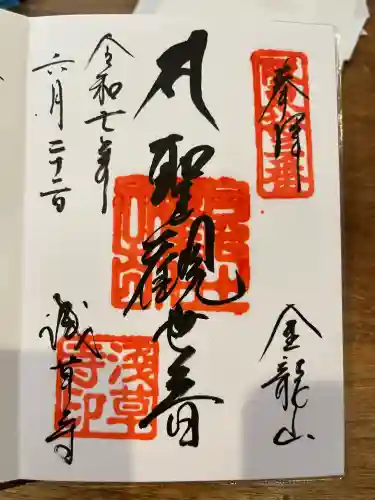 奉拝
金龍山
聖観世音
令和七年
六月二十二日
浅草寺
浅草
寺印